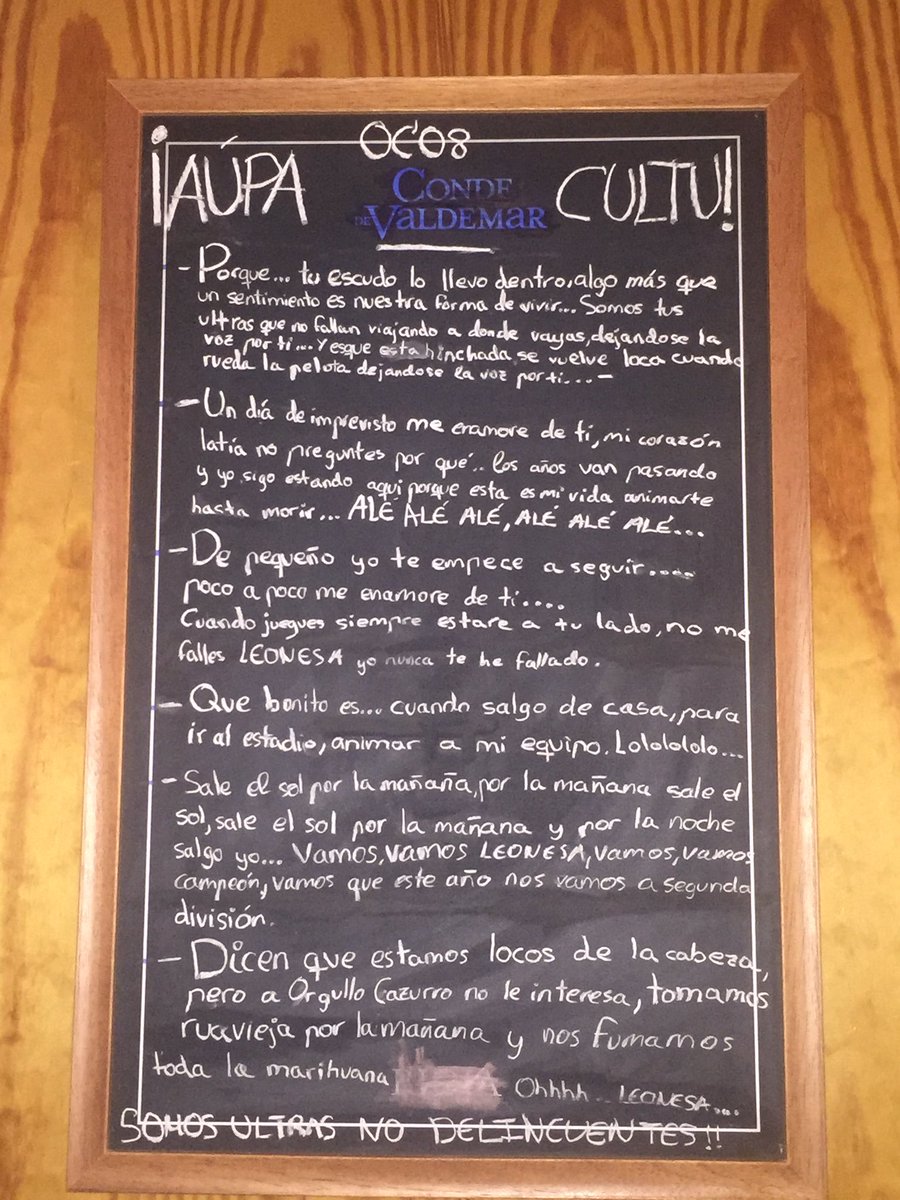 OC'08
¡AÚPA CONDE DE VALDEMAR CULTU!
- Porque... tu escudo lo llevo dentro, algo más que
un sentimiento es nuestra forma de vivir... Somos tus
ultras que no fallan viajando a donde vayas, dejandose la
voz por ti... Y esque esta hinchada se vuelve loca cuando
rueda la pelota dejandose la voz por ti... -
- Un día de imprevisto me enamore de ti, mi corazón
latía no preguntes por qué.. los años van pasando
y yo sigo estando aqui porque esta es mi vida animarte
hasta morir... ALÉ ALÉ ALÉ, ALÉ ALÉ ALÉ...
- De pequeño yo te empece a seguir....
poco a poco me enamore de ti....
Cuando juegues siempre estare a tu lado, no me
falles LEONESA yo nunca te he fallado.
- Que bonito es... cuando salgo de casa, para
ir al estadio, animar a mi equipo. Lololololo...
- Sale el sol por la mañaña, por la mañana sale el
sol, sale el sol por la mañana y por la noche
salgo yo... Vamos, vamos LEONESA, vamos, vamos
campeón, vamos que este año nos vamos a segunda
división.
- Dicen que estamos locos de la cabeza,
pero a Orgullo Cazurro no le interesa, tomamos
ruavieja por la mañana y nos fumamos
toda la marihuana
Ohhhh.. LEONESA....
SOMOS ULTRAS NO DELINCUENTES!!